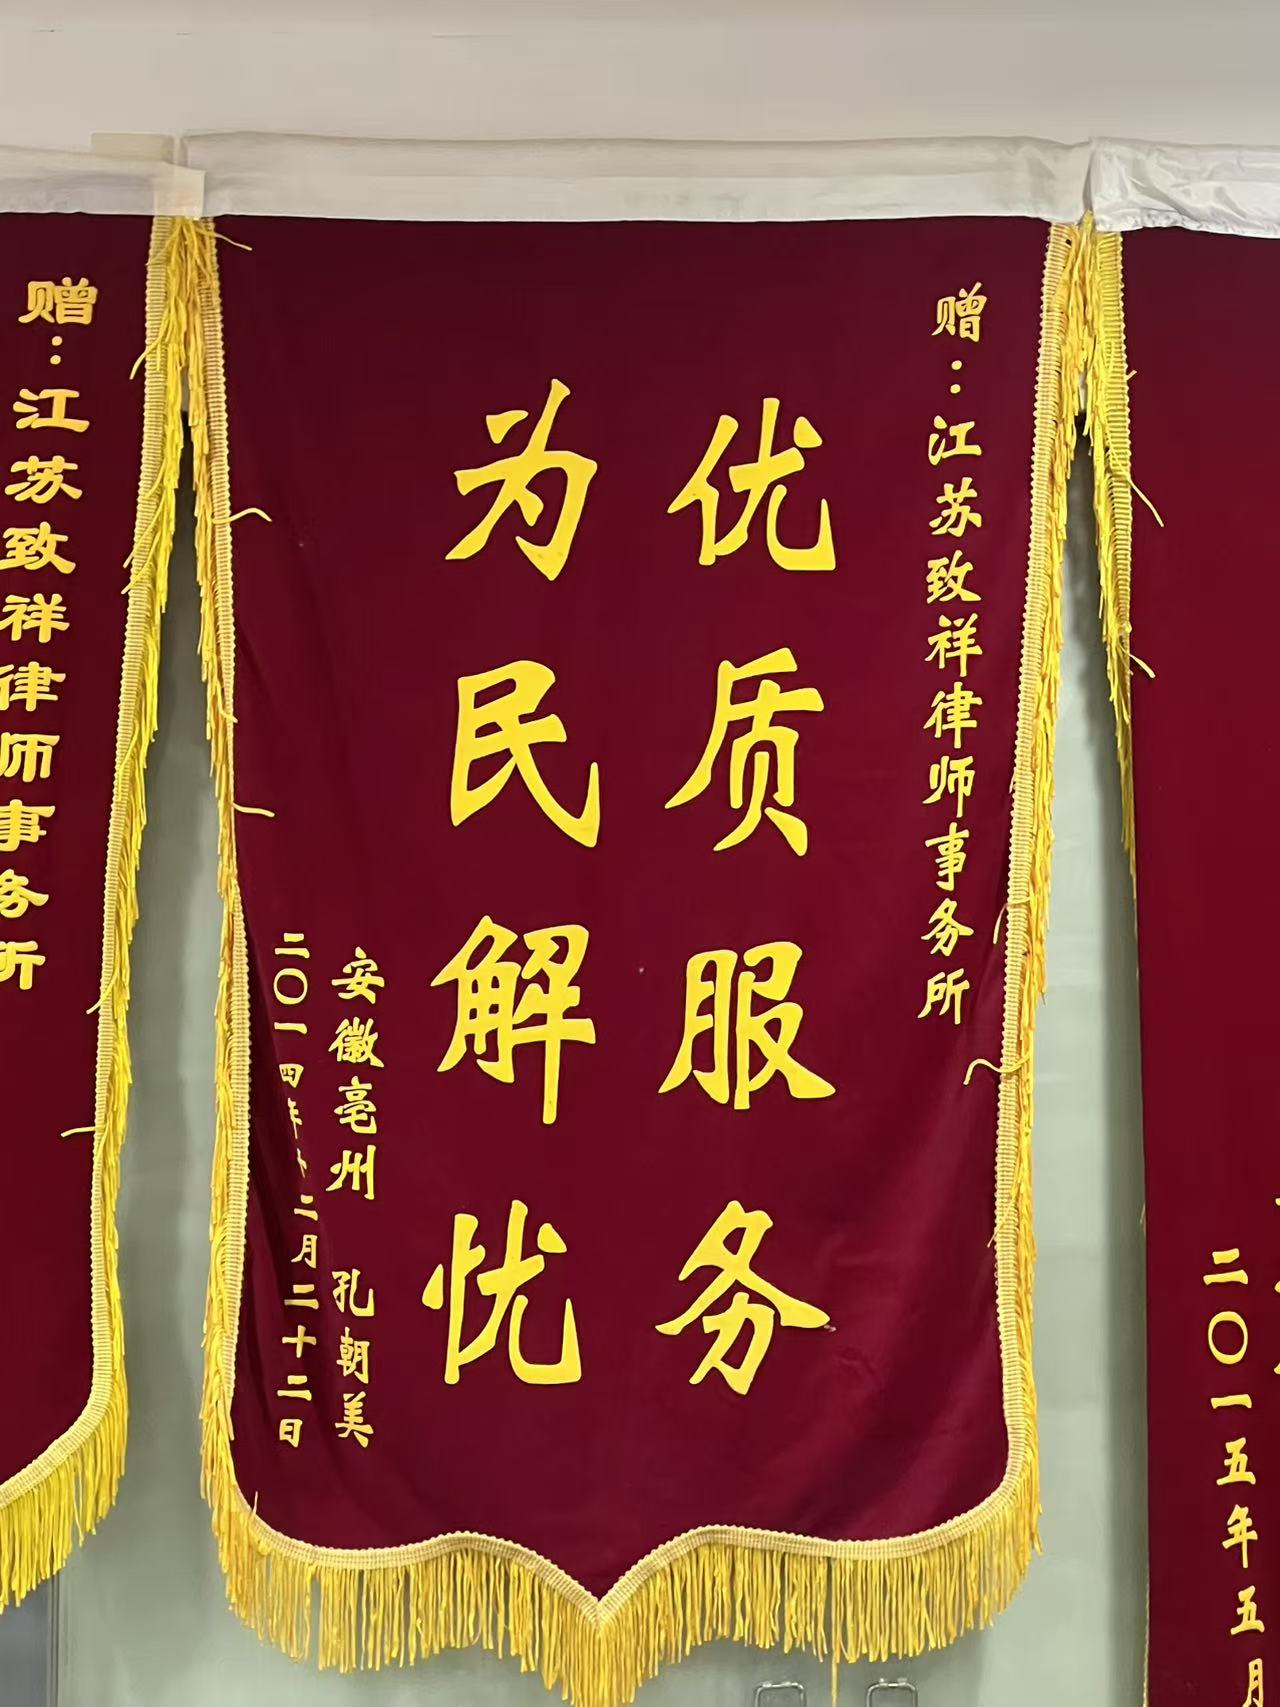 赠：江苏致祥律师事务所
优质服务
为民解忧
安徽亳州 孔朝美
二〇一四年十二月二十二日
赠：江苏致祥律师事务所
二〇一五年五月